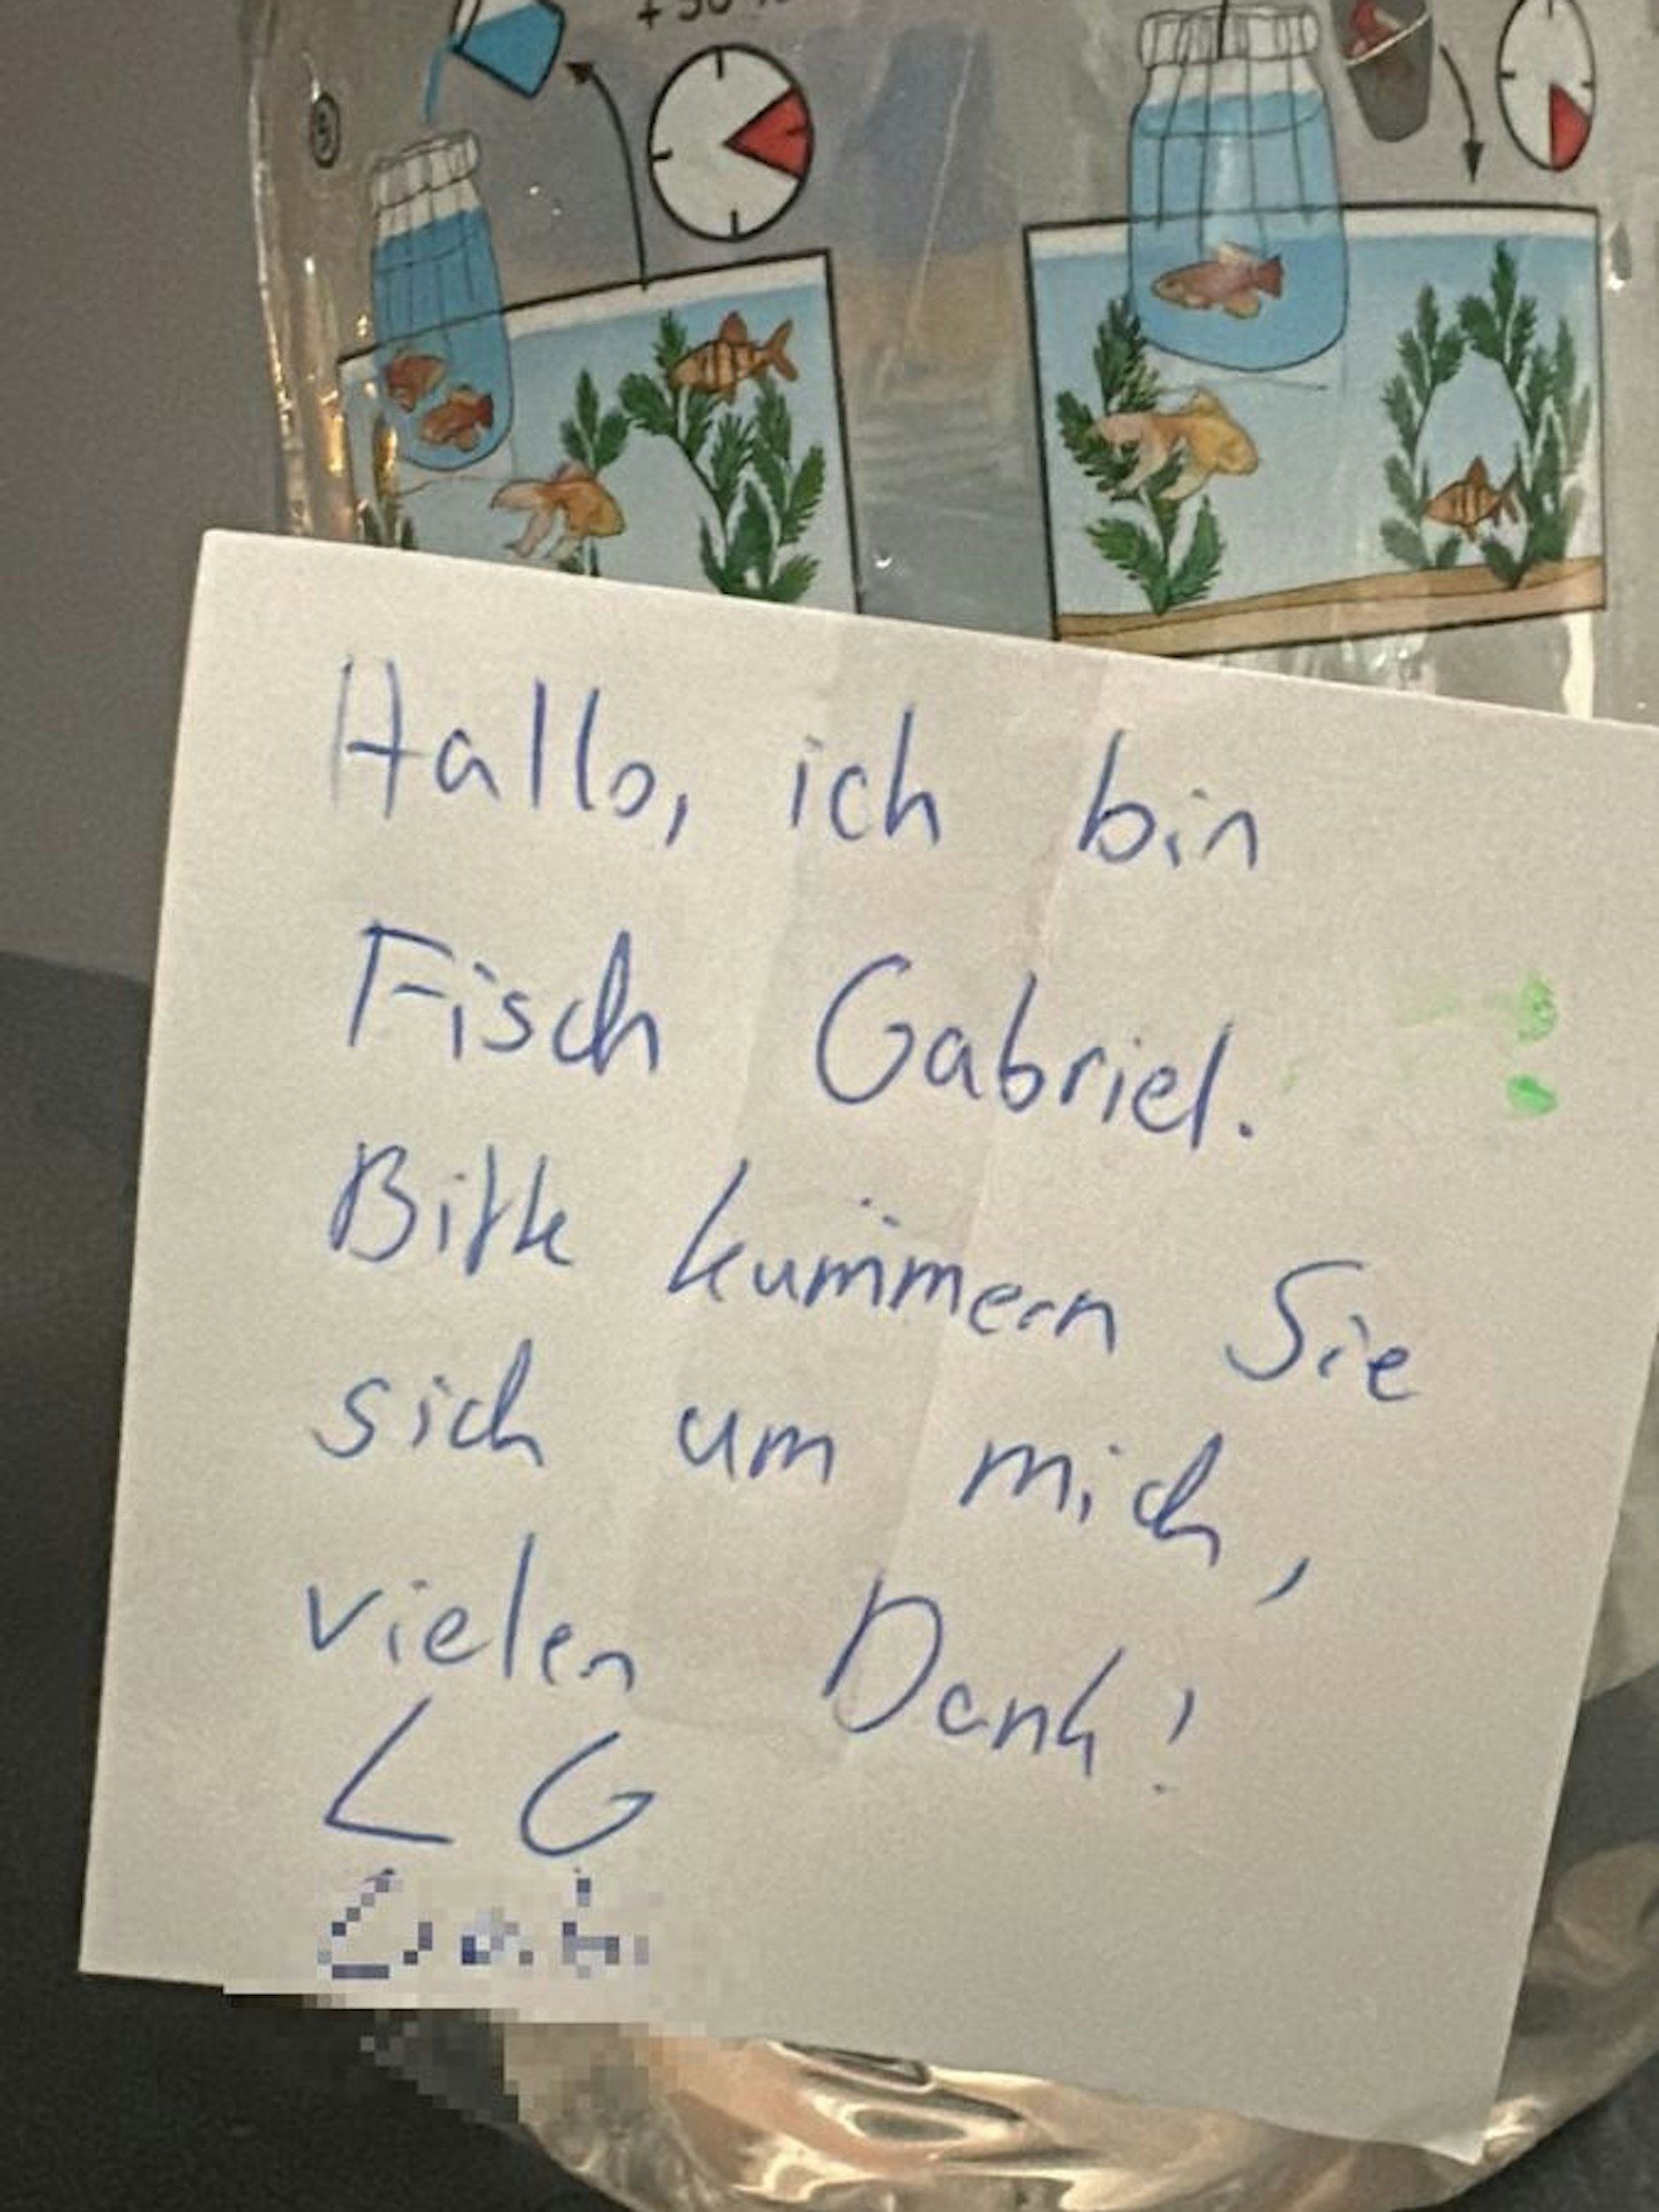 5
Hallo, ich bin
Fisch Gabriel.
Bitte kümmern Sie
sich um mich,
vielen Dank!
LG